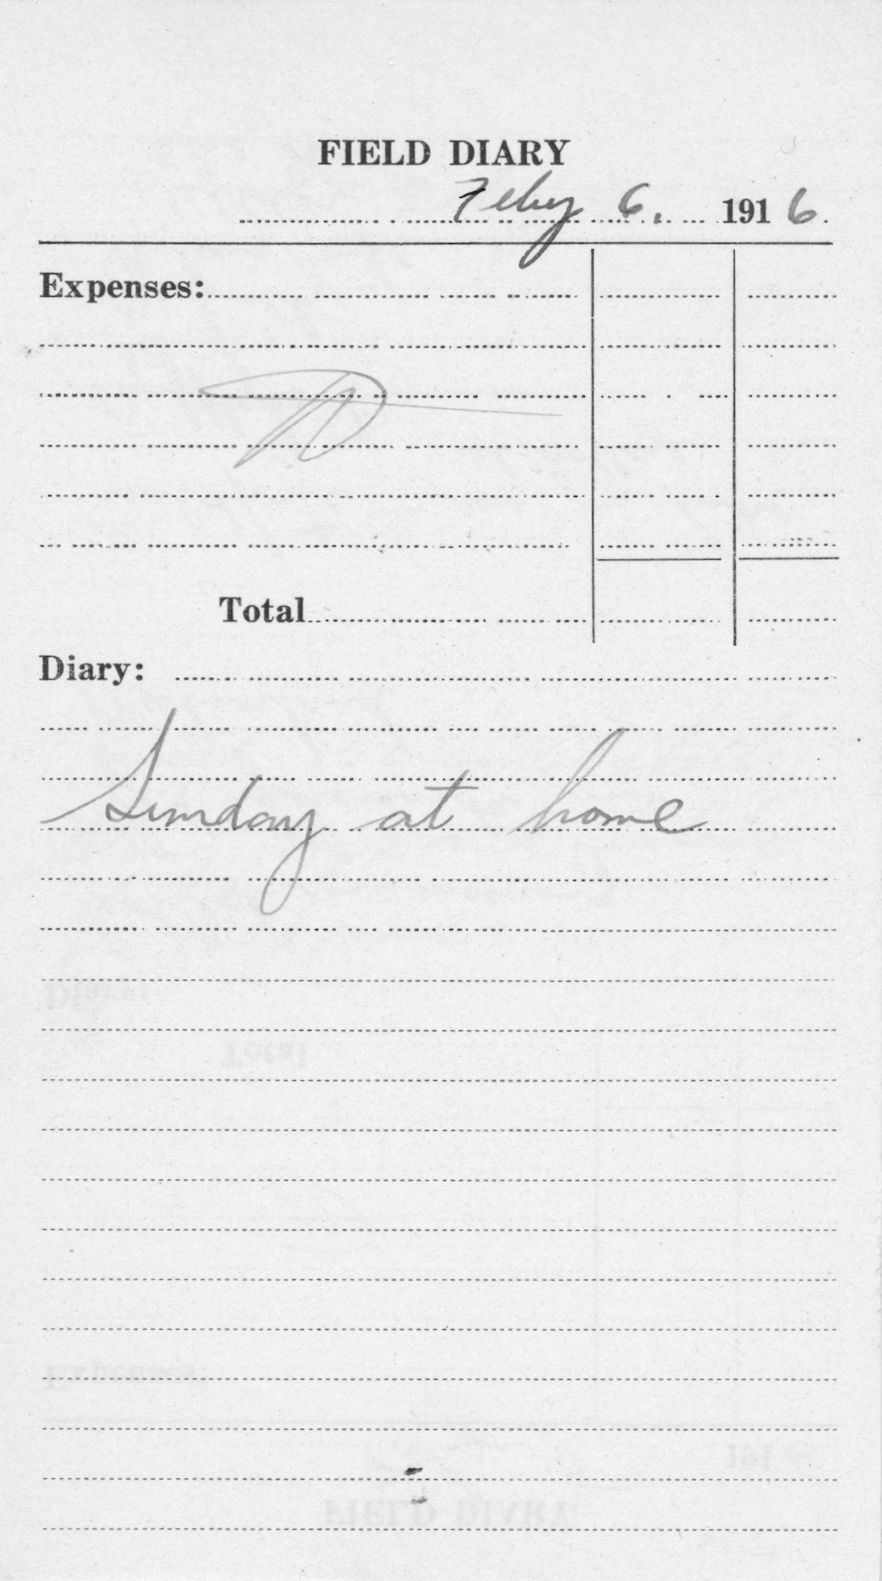 FIELD DIARY
Feby 6. 1916.
Expenses:
Total
Diary:
Sunday at home